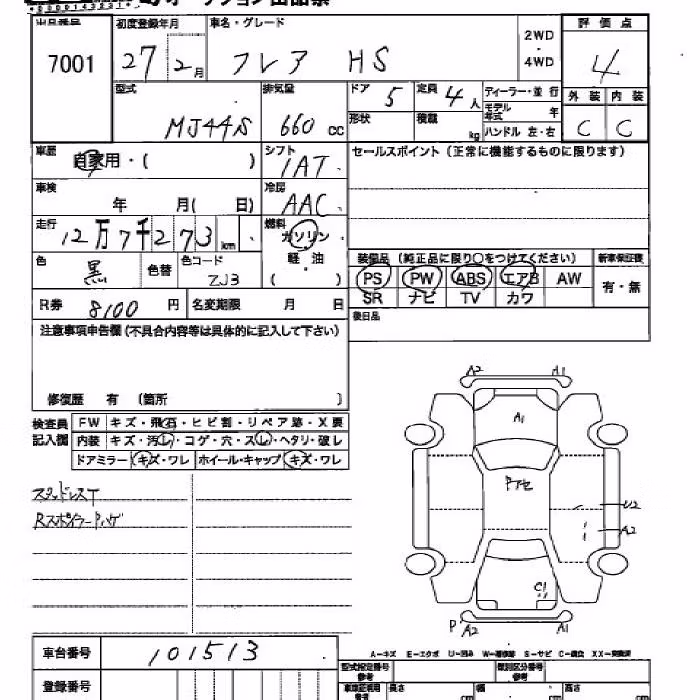 出品番号 初度登録年月 車名・グレード 評価点
7001 27 2月 フレア HS 2WD・4WD 4
型式 排気量 ドア 5 定員 4人 ディーラー・並行 外装 内装
MJ44S 660 cc 形状 積載 kg モデル年式 年 ハンドル 左・右 C C
車歴 自家用・( ) シフト 1AT セールスポイント(正常に機能するものに限ります)
車検 年 月( 日) 冷房 AAC
走行 12万7千273km 燃料 ガソリン・軽油 ( )
色 黒 色替 色コード ZJ3
装備品(純正品に限り○をつけてください) 新車保証書
PS PW ABS エアB AW 有・無
SR ナビ TV カワ
R券 8100円 名変期限 月 日 後日品
注意事項申告欄(不具合内容等は具体的に記入して下さい)
修復歴 有 (箇所 )
検査員記入欄 FW キズ・飛石・ヒビ割・リペア跡・X要
内装 キズ・汚レ・コゲ・穴・スレ・ヘタリ・破レ
ドアミラー キズ・ワレ ホイール・キャップ キズ・ワレ
A2 A1
A1
スタッドレスT
Rスポイラー Pハゲ
Pアセ
U2
A2
C1
P A2 A1
車台番号 101513
A-キズ E-エクボ U-凹み W-補修跡 S-サビ C-腐食 XX-交換済
登録番号 型式指定番号 参考 類別区分番号 参考
車庫証明用 参考 長さ cm 幅 cm 高さ cm